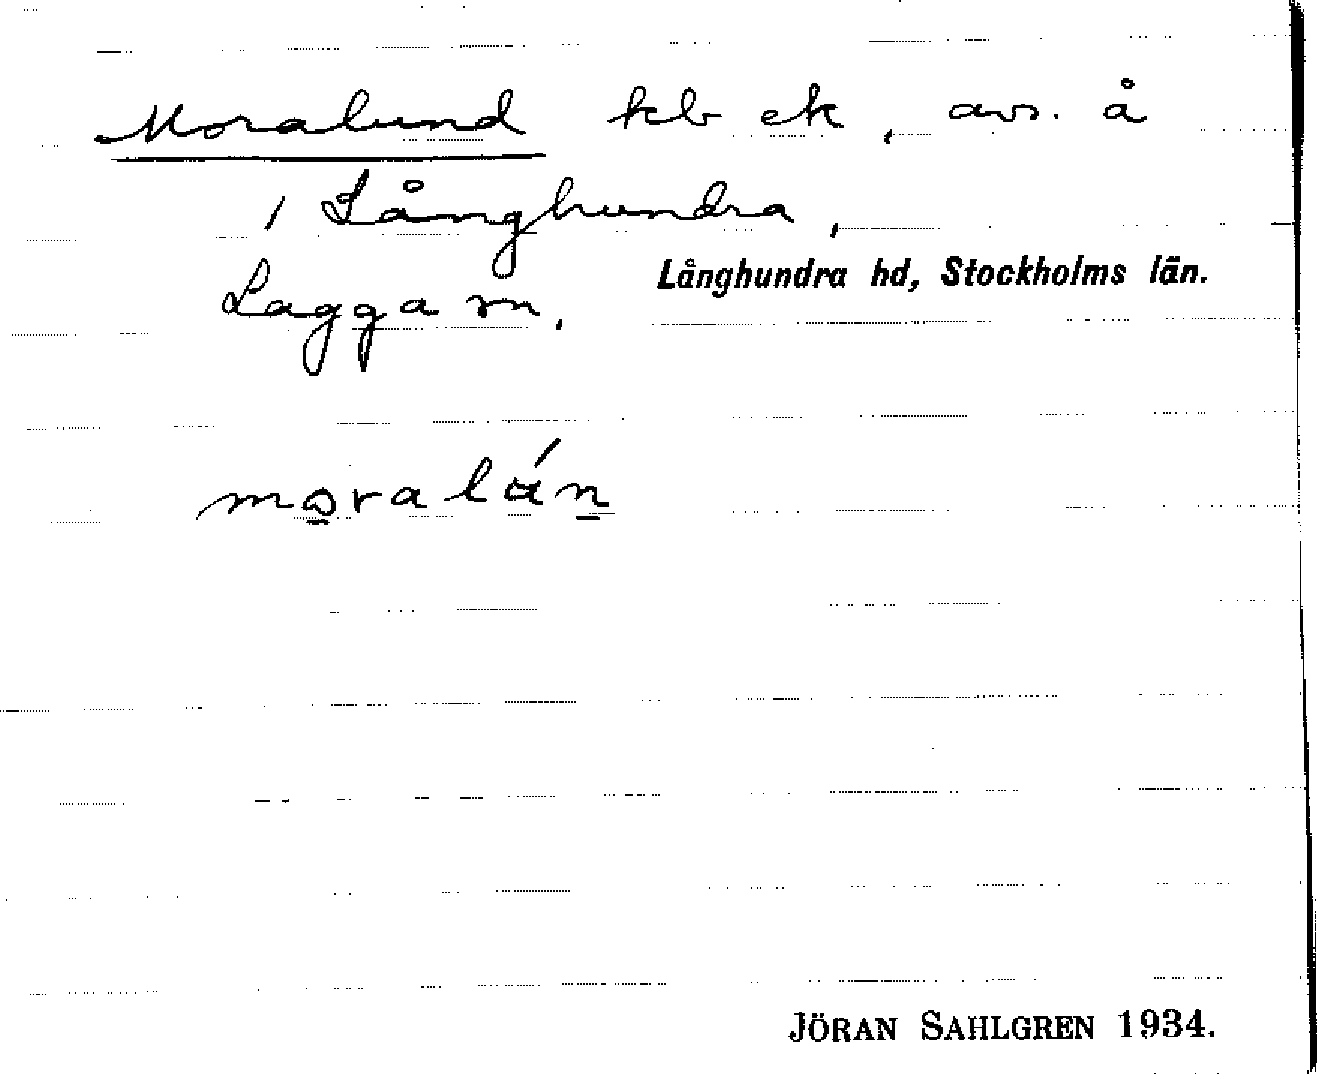 Moralund kb ek, avs. å
1 Långhundra,
Lagga sn,
Långhundra hd, Stockholms län.
JÖRAN SAHLGREN 1934.